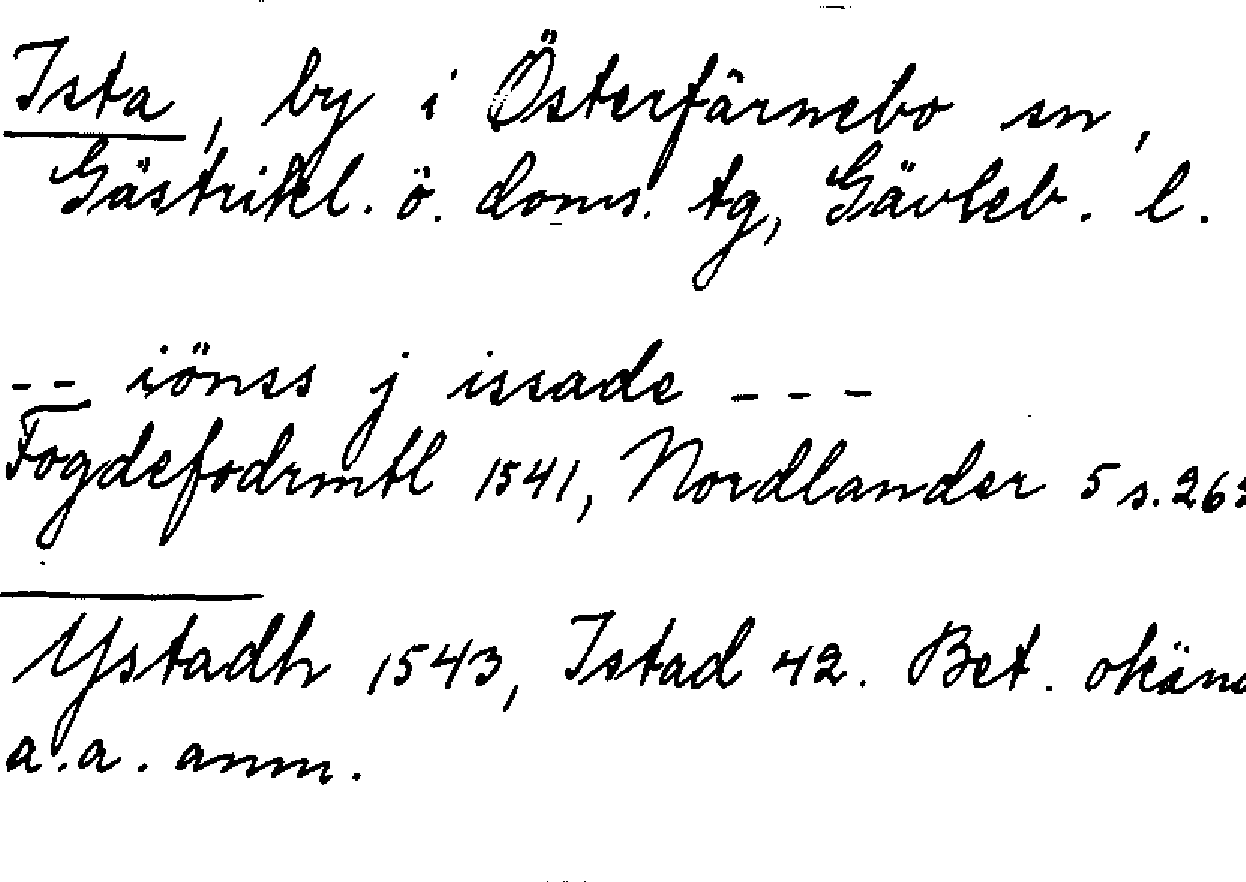 Ista, by i Österfärnebo sn,
Gästrikl. ö. doms. tg, Gävleb. l.
-- iönss j issade ---
Fogdefodrmtl 1541, Nordlander 5 s.
Ystadh 1543, Istad 42. Bet.
a.a. anm.